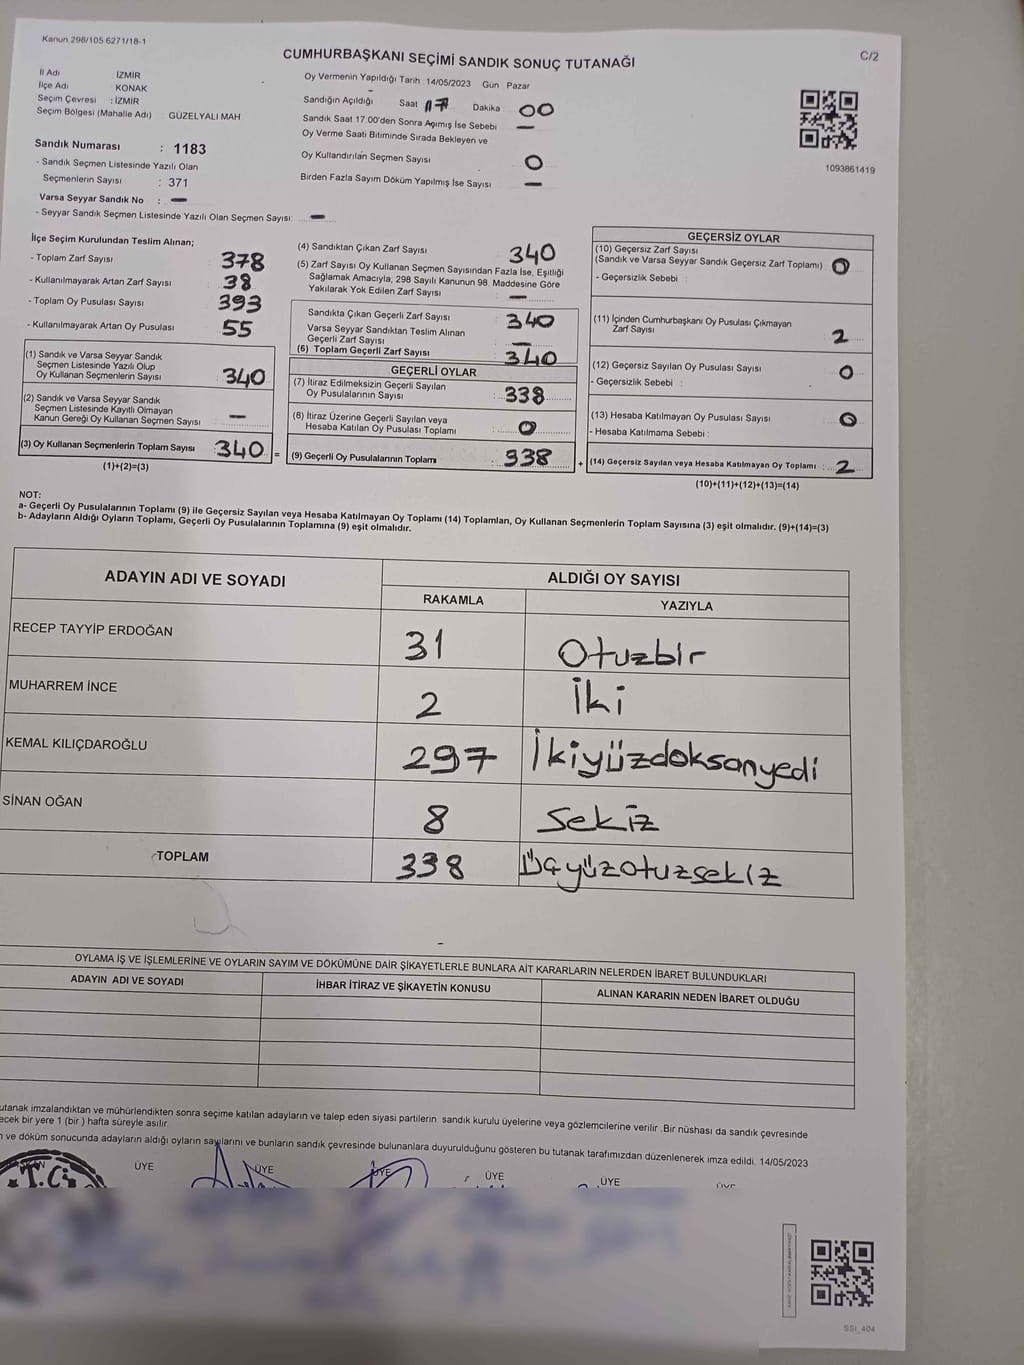 Kanun 298/105 6271/18-1
C/2
CUMHURBAŞKANI SEÇİMİ SANDIK SONUÇ TUTANAĞI
İl Adı İZMİR
İlçe Adı KONAK
Seçim Çevresi : İZMİR
Seçim Bölgesi (Mahalle Adı) GÜZELYALI MAH
Oy Vermenin Yapıldığı Tarih 14/05/2023 Gün Pazar
Sandığın Açıldığı Saat 17 Dakika 00
Sandık Saat 17:00'den Sonra Açımış İse Sebebi —
Oy Verme Saati Bitiminde Sırada Bekleyen ve
Oy Kullandırılan Seçmen Sayısı 0
Birden Fazla Sayım Döküm Yapılmış İse Sayısı —
1093861419
Sandık Numarası : 1183
- Sandık Seçmen Listesinde Yazılı Olan
Seçmenlerin Sayısı : 371
Varsa Seyyar Sandık No : —
- Seyyar Sandık Seçmen Listesinde Yazılı Olan Seçmen Sayısı: —
İlçe Seçim Kurulundan Teslim Alınan;
- Toplam Zarf Sayısı 378
- Kullanılmayarak Artan Zarf Sayısı 38
- Toplam Oy Pusulası Sayısı 393
- Kullanılmayarak Artan Oy Pusulası 55
(1) Sandık ve Varsa Seyyar Sandık
Seçmen Listesinde Yazılı Olup
Oy Kullanan Seçmenlerin Sayısı 340
(2) Sandık ve Varsa Seyyar Sandık
Seçmen Listesinde Kayıtlı Olmayan
Kanun Gereği Oy Kullanan Seçmen Sayısı —
(3) Oy Kullanan Seçmenlerin Toplam Sayısı 340 =
(1)+(2)=(3)
(4) Sandıktan Çıkan Zarf Sayısı 340
(5) Zarf Sayısı Oy Kullanan Seçmen Sayısından Fazla İse, Eşitliği
Sağlamak Amacıyla, 298 Sayılı Kanunun 98. Maddesine Göre
Yakılarak Yok Edilen Zarf Sayısı —
Sandıkta Çıkan Geçerli Zarf Sayısı 340
Varsa Seyyar Sandıktan Teslim Alınan
Geçerli Zarf Sayısı —
(6) Toplam Geçerli Zarf Sayısı 340
GEÇERLİ OYLAR
(7) İtiraz Edilmeksizin Geçerli Sayılan
Oy Pusulalarının Sayısı : 338
(8) İtiraz Üzerine Geçerli Sayılan veya
Hesaba Katılan Oy Pusulası Toplamı : 0
(9) Geçerli Oy Pusulalarının Toplamı : 338 +
GEÇERSİZ OYLAR
(10) Geçersiz Zarf Sayısı
(Sandık ve Varsa Seyyar Sandık Geçersiz Zarf Toplamı) 0
- Geçersizlik Sebebi :
(11) İçinden Cumhurbaşkanı Oy Pusulası Çıkmayan
Zarf Sayısı 2
(12) Geçersiz Sayılan Oy Pusulası Sayısı 0
- Geçersizlik Sebebi :
(13) Hesaba Katılmayan Oy Pusulası Sayısı 0
- Hesaba Katılmama Sebebi :
(14) Geçersiz Sayılan veya Hesaba Katılmayan Oy Toplamı : 2
(10)+(11)+(12)+(13)=(14)
NOT:
a- Geçerli Oy Pusulalarının Toplamı (9) ile Geçersiz Sayılan veya Hesaba Katılmayan Oy Toplamı (14) Toplamları, Oy Kullanan Seçmenlerin Toplam Sayısına (3) eşit olmalıdır. (9)+(14)=(3)
b- Adayların Aldığı Oyların Toplamı, Geçerli Oy Pusulalarının Toplamına (9) eşit olmalıdır.
ADAYIN ADI VE SOYADI ALDIĞI OY SAYISI
RAKAMLA YAZIYLA
RECEP TAYYİP ERDOĞAN 31 Otuzbir
MUHARREM İNCE 2 İki
KEMAL KILIÇDAROĞLU 297 İkiyüzdoksanyedi
SİNAN OĞAN 8 Sekiz
TOPLAM 338 Üçyüzotuzsekiz
OYLAMA İŞ VE İŞLEMLERİNE VE OYLARIN SAYIM VE DÖKÜMÜNE DAİR ŞİKAYETLERLE BUNLARA AİT KARARLARIN NELERDEN İBARET BULUNDUKLARI
ADAYIN ADI VE SOYADI İHBAR İTİRAZ VE ŞİKAYETİN KONUSU ALINAN KARARIN NEDEN İBARET OLDUĞU
tutanak imzalandıktan ve mühürlendikten sonra seçime katılan adayların ve talep eden siyasi partilerin sandık kurulu üyelerine veya gözlemcilerine verilir. Bir nüshası da sandık çevresinde
ecek bir yere 1 (bir) hafta süreyle asılır.
ve döküm sonucunda adayların aldığı oyların sayılarını ve bunların sandık çevresinde bulunanlara duyurulduğunu gösteren bu tutanak tarafımızdan düzenlenerek imza edildi. 14/05/2023
ÜYE ÜYE ÜYE ÜYE ÜYE
T.C.
SSI_404